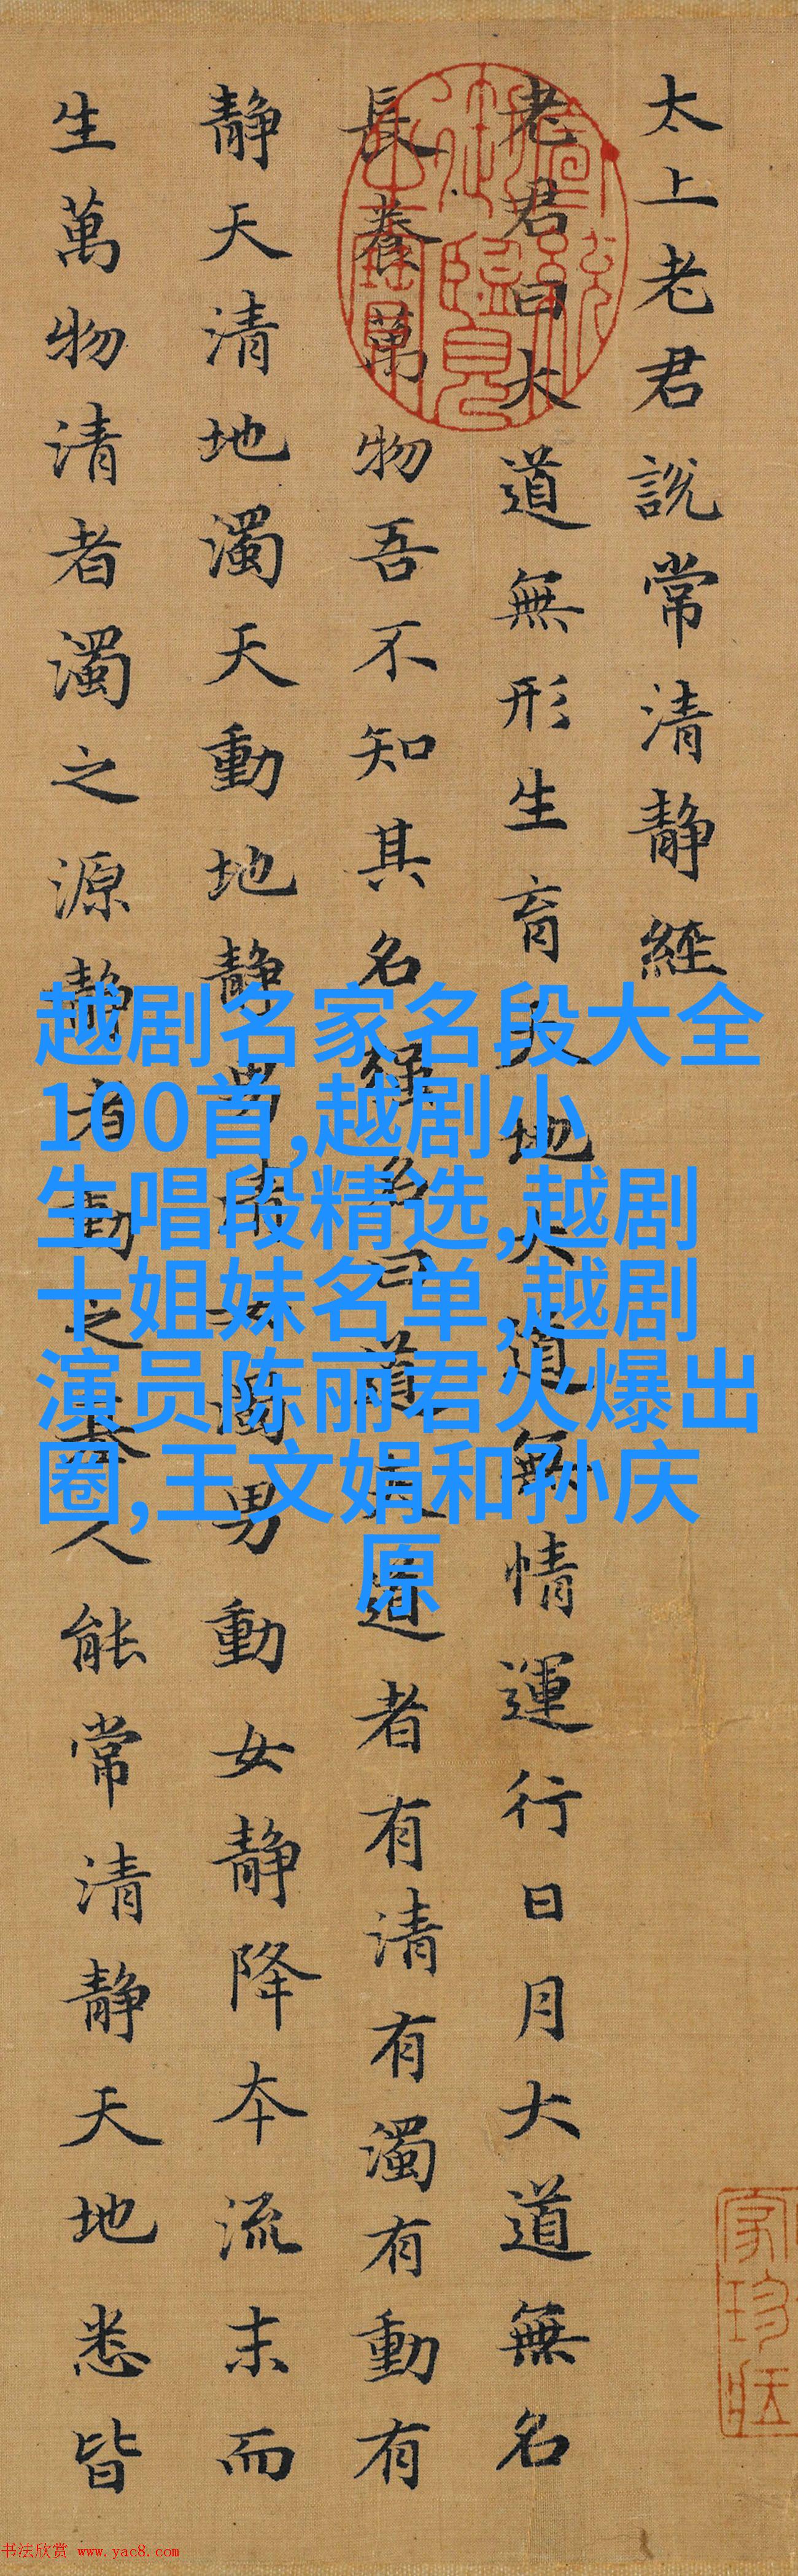 太上老君説常清静經
老君曰大道無形生育天地大道無情運行日月大道無名
長養萬物吾不知其名強名曰道夫道者有清有濁有動有
静天清地濁天動地静男清女濁男動女静降夲流末而
生萬物清者濁之源静者動之基人能常清静天地悉皆
越剧名家名段大全
100首,越剧小
生唱段精选,越剧
十姐妹名单,越剧
演员陈丽君火爆出
圈,王文娟和孙庆
原
书法欣赏 www.yac8.com